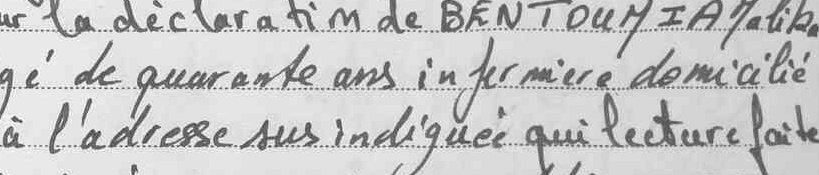 ur la déclaration de BENTOUMIA Malika
gé de quarante ans infirmière domicilié
à l'adresse sus indiqueé qui lecture faite